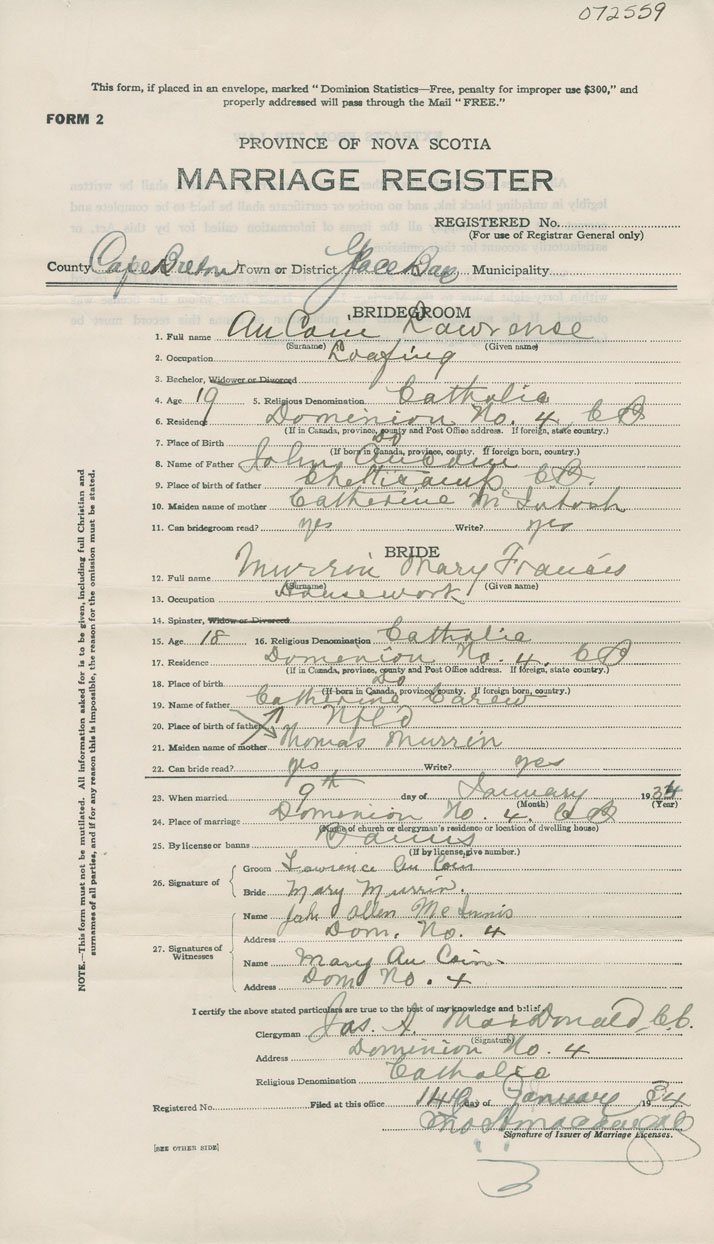 072559
This form, if placed in an envelope, marked "Dominion Statistics—Free, penalty for improper use $300," and
properly addressed will pass through the Mail "FREE."
FORM 2
PROVINCE OF NOVA SCOTIA
MARRIAGE REGISTER
REGISTERED No.
(For use of Registrar General only)
County Cape Breton Town or District Glace Bay Municipality
BRIDEGROOM
1. Full name Au Coin Lawrense
(Surname) (Given name)
2. Occupation Loafing
3. Bachelor, Widower or Divorced
4. Age 19 5. Religious Denomination Catholic
6. Residence Dominion No. 4, C B
(If in Canada, province, county and Post Office address. If foreign, state country.)
7. Place of Birth Do
(If born in Canada, province, county. If foreign born, country.)
8. Name of Father John AuCoin
9. Place of birth of father Chetticamp C.B.
10. Maiden name of mother Catherine McIntosh
11. Can bridegroom read? yes Write? yes
BRIDE
12. Full name Murrin Mary Francis
(Surname) (Given name)
13. Occupation Housework
14. Spinster, Widow or Divorced
15. Age 18 16. Religious Denomination Catholic
17. Residence Dominion No. 4, C B
(If in Canada, province, county and Post Office address. If foreign, state country.)
18. Place of birth Do
(If born in Canada, province, county. If foreign born, country.)
19. Name of father Catherine Carew
20. Place of birth of father Nfl'd
21. Maiden name of mother Thomas Murrin
22. Can bride read? yes Write? yes
23. When married 9th day of January 1934
(Month) (Year)
24. Place of marriage Dominion No. 4. C B
(Name of church or clergyman's residence or location of dwelling house)
25. By license or banns Banns
(If by license, give number.)
26. Signature of
Groom Lawrence Au Coin
Bride Mary Murrin.
27. Signatures of Witnesses
Name John Allen McInnis
Address Dom. No. 4
Name Mary Au Coin
Address Dom No. 4
I certify the above stated particulars are true to the best of my knowledge and belief
Clergyman Jas. A. MacDonald, C.C.
(Signature)
Address Dominion No. 4
Religious Denomination Catholic
Registered No. Filed at this office 14th day of January 1934
Signature of Issuer of Marriage Licenses.
[SEE OTHER SIDE]
NOTE.—This form must not be mutilated. All information asked for is to be given, including full Christian and
surnames of all parties, and if for any reason this is impossible, the reason for the omission must be stated.